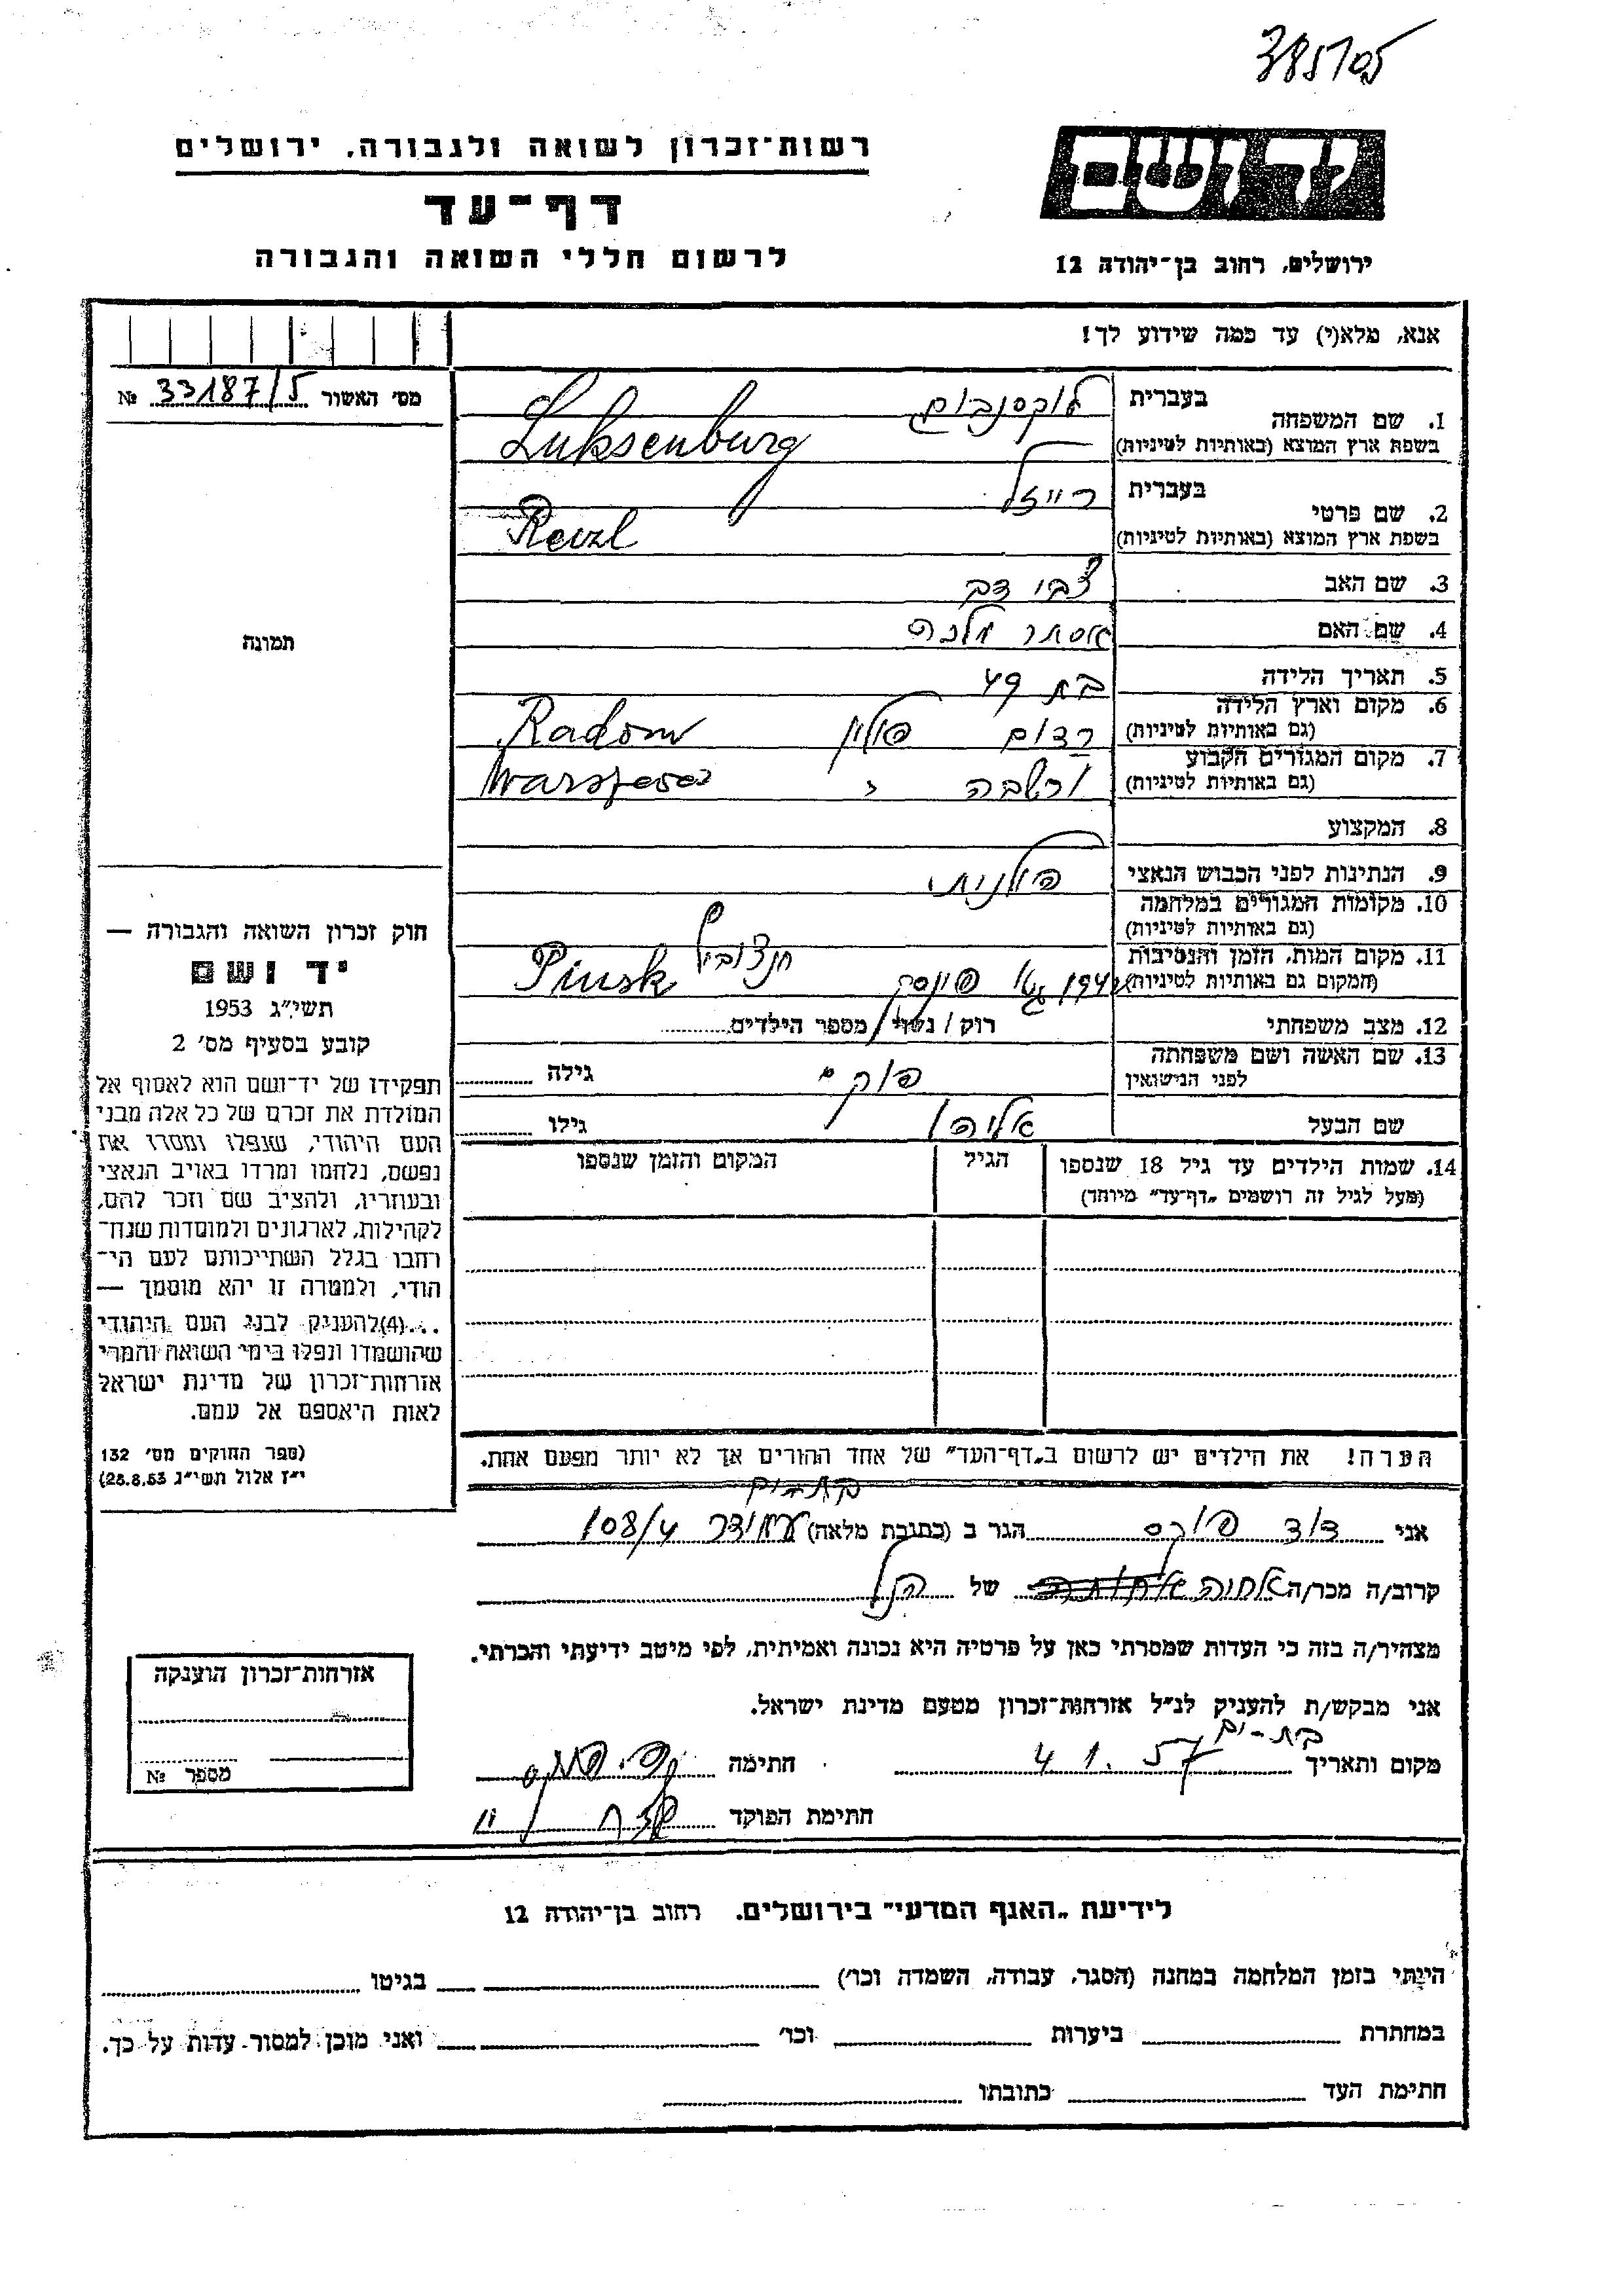 385105
רשות־זכרון לשואה ולגבורה, ירושלים
דף־עד
לרשום חללי השואה והגבורה
יד ושם
ירושלים, רחוב בן־יהודה 12
אנא, מלא(י) עד כמה שידוע לך!
מס' האשור 33187/5 №
תמונה
1. שם המשפחה
בעברית לוקסנבורג
בשפת ארץ המוצא (באותיות לטיניות) Luksenburg
2. שם פרטי
בעברית רייזל
בשפת ארץ המוצא (באותיות לטיניות) Reizl
3. שם האב צבי דב
4. שם האם אסתר מלכה
5. תאריך הלידה בת 49
6. מקום וארץ הלידה
(גם באותיות לטיניות) רדום פולין Radom
7. מקום המגורים הקבוע
(גם באותיות לטיניות) ורשבה Warszawa
8. המקצוע
9. הנתינות לפני הכבוש הנאצי פולנית
10. מקומות המגורים במלחמה
(גם באותיות לטיניות)
11. מקום המות, הזמן והנסיבות
(המקום גם באותיות לטיניות) 1942 גטו פינסק Pinsk
12. מצב משפחתי רוק / נשוי / מספר הילדים
13. שם האשה ושם משפחתה
לפני הנישואין גילה
שם הבעל אליהו גילו
14. שמות הילדים עד גיל 18 שנספו
(מעל לגיל זה רושמים „דף־עד" מיוחד)
הגיל
המקום והזמן שנספו
הערה! את הילדים יש לרשום ב„דף־העד" של אחד ההורים אך לא יותר מפעם אחת.
חוק זכרון השואה והגבורה —
יד ושם
תשי"ג 1953
קובע בסעיף מס' 2
תפקידו של יד־ושם הוא לאסוף אל
המולדת את זכרם של כל אלה מבני
העם היהודי, שנפלו ומסרו את
נפשם, נלחמו ומרדו באויב הנאצי
ובעוזריו, ולהציב שם וזכר להם,
לקהילות, לארגונים ולמוסדות שנח־
רחבו בגלל השתייכותם לעם הי־
הודי, ולמטרה זו יהא מוסמך —
...(4)להעניק לבני העם היהודי
שהושמדו ונפלו בימי השואה והמרי
אזרחות־זכרון של מדינת ישראל
לאות היאספם אל עמם.
(ספר החוקים מס' 132
י"ז אלול תשי"ג 28.8.53)
בת-ים
אני דוד הגר ב (כתובת מלאה) 108/4
קרוב/ה מכר/ה של הנ"ל
מצהיר/ה בזה כי העדות שמסרתי כאן על פרטיה היא נכונה ואמיתית, לפי מיטב ידיעתי והכרתי.
אני מבקש/ת להעניק לנ"ל אזרחות־זכרון מטעם מדינת ישראל.
בת-ים
מקום ותאריך 4.1.57 חתימה
חתימת הפוקד
אזרחות־זכרון הוענקה
מספר №
לידיעת „האגף המדעי" בירושלים, רחוב בן־יהודה 12
הייתי בזמן המלחמה במחנה (הסגר, עבודה, השמדה וכו') בגיטו
במחתרת ביערות וכו' ואני מוכן למסור עדות על כך.
חתימת העד כתובתו